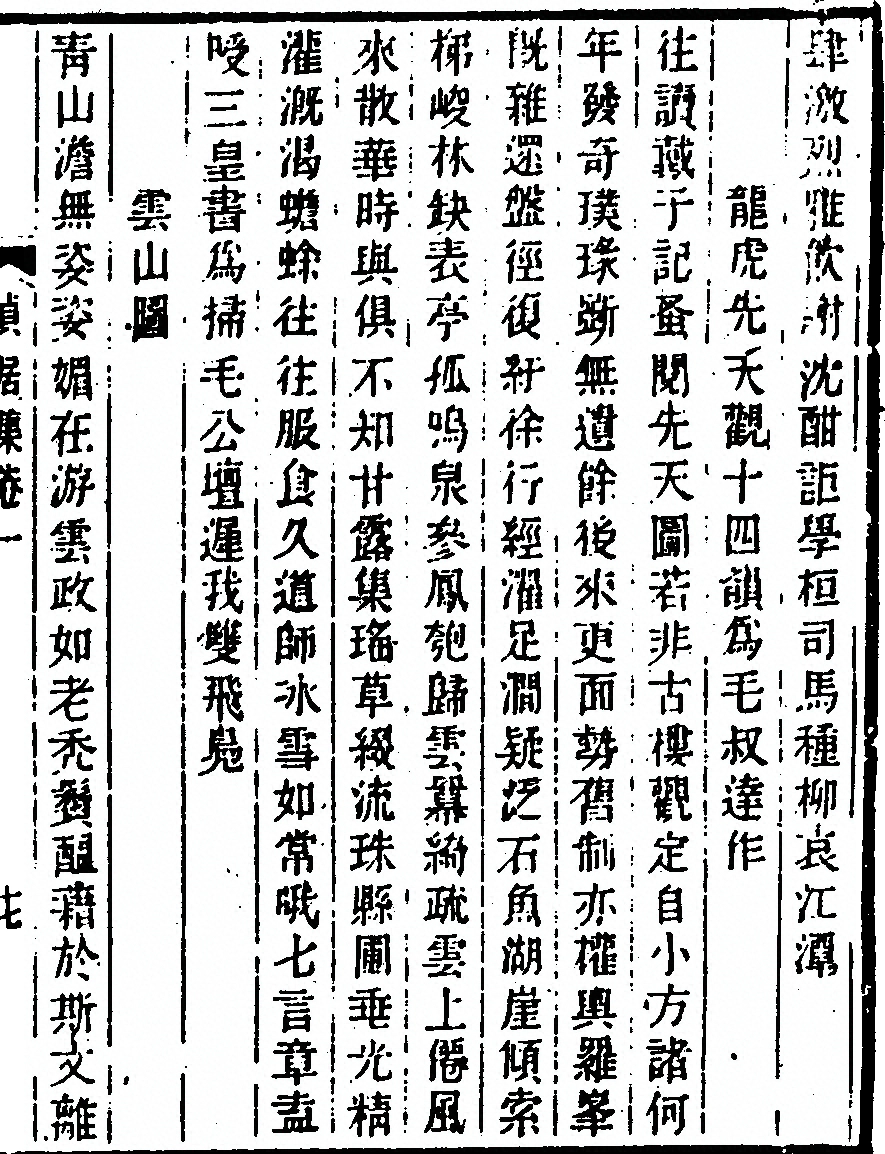 肆激烈雅飲謝沈酣詎學桓司馬種柳哀江潭
龍虎先天觀十四韻爲毛叔達作
往讀戴子記蚤閱先天圖若非古樓觀定自小方諸何
年發奇璞琢斲無遺餘後來更面勢舊制亦權輿羅峯
旣雜還盤徑復紆徐行經濯足澗疑泛石魚湖崖傾索
梯峻林缺表亭孤嗚泉參鳳匏歸雲羃綺疏雲上僊風
來散華時與俱不知甘露集瑤草綴流珠縣圃垂光精
灌溉渴蟾蜍往往服食久道師冰雪如常哦七言章盍
受三皇書爲掃毛公壇遲我雙飛鳧
雲山圖
青山澹無姿姿媚在游雲政如老禿鬢醖藉於斯文離
貞居集卷一
七